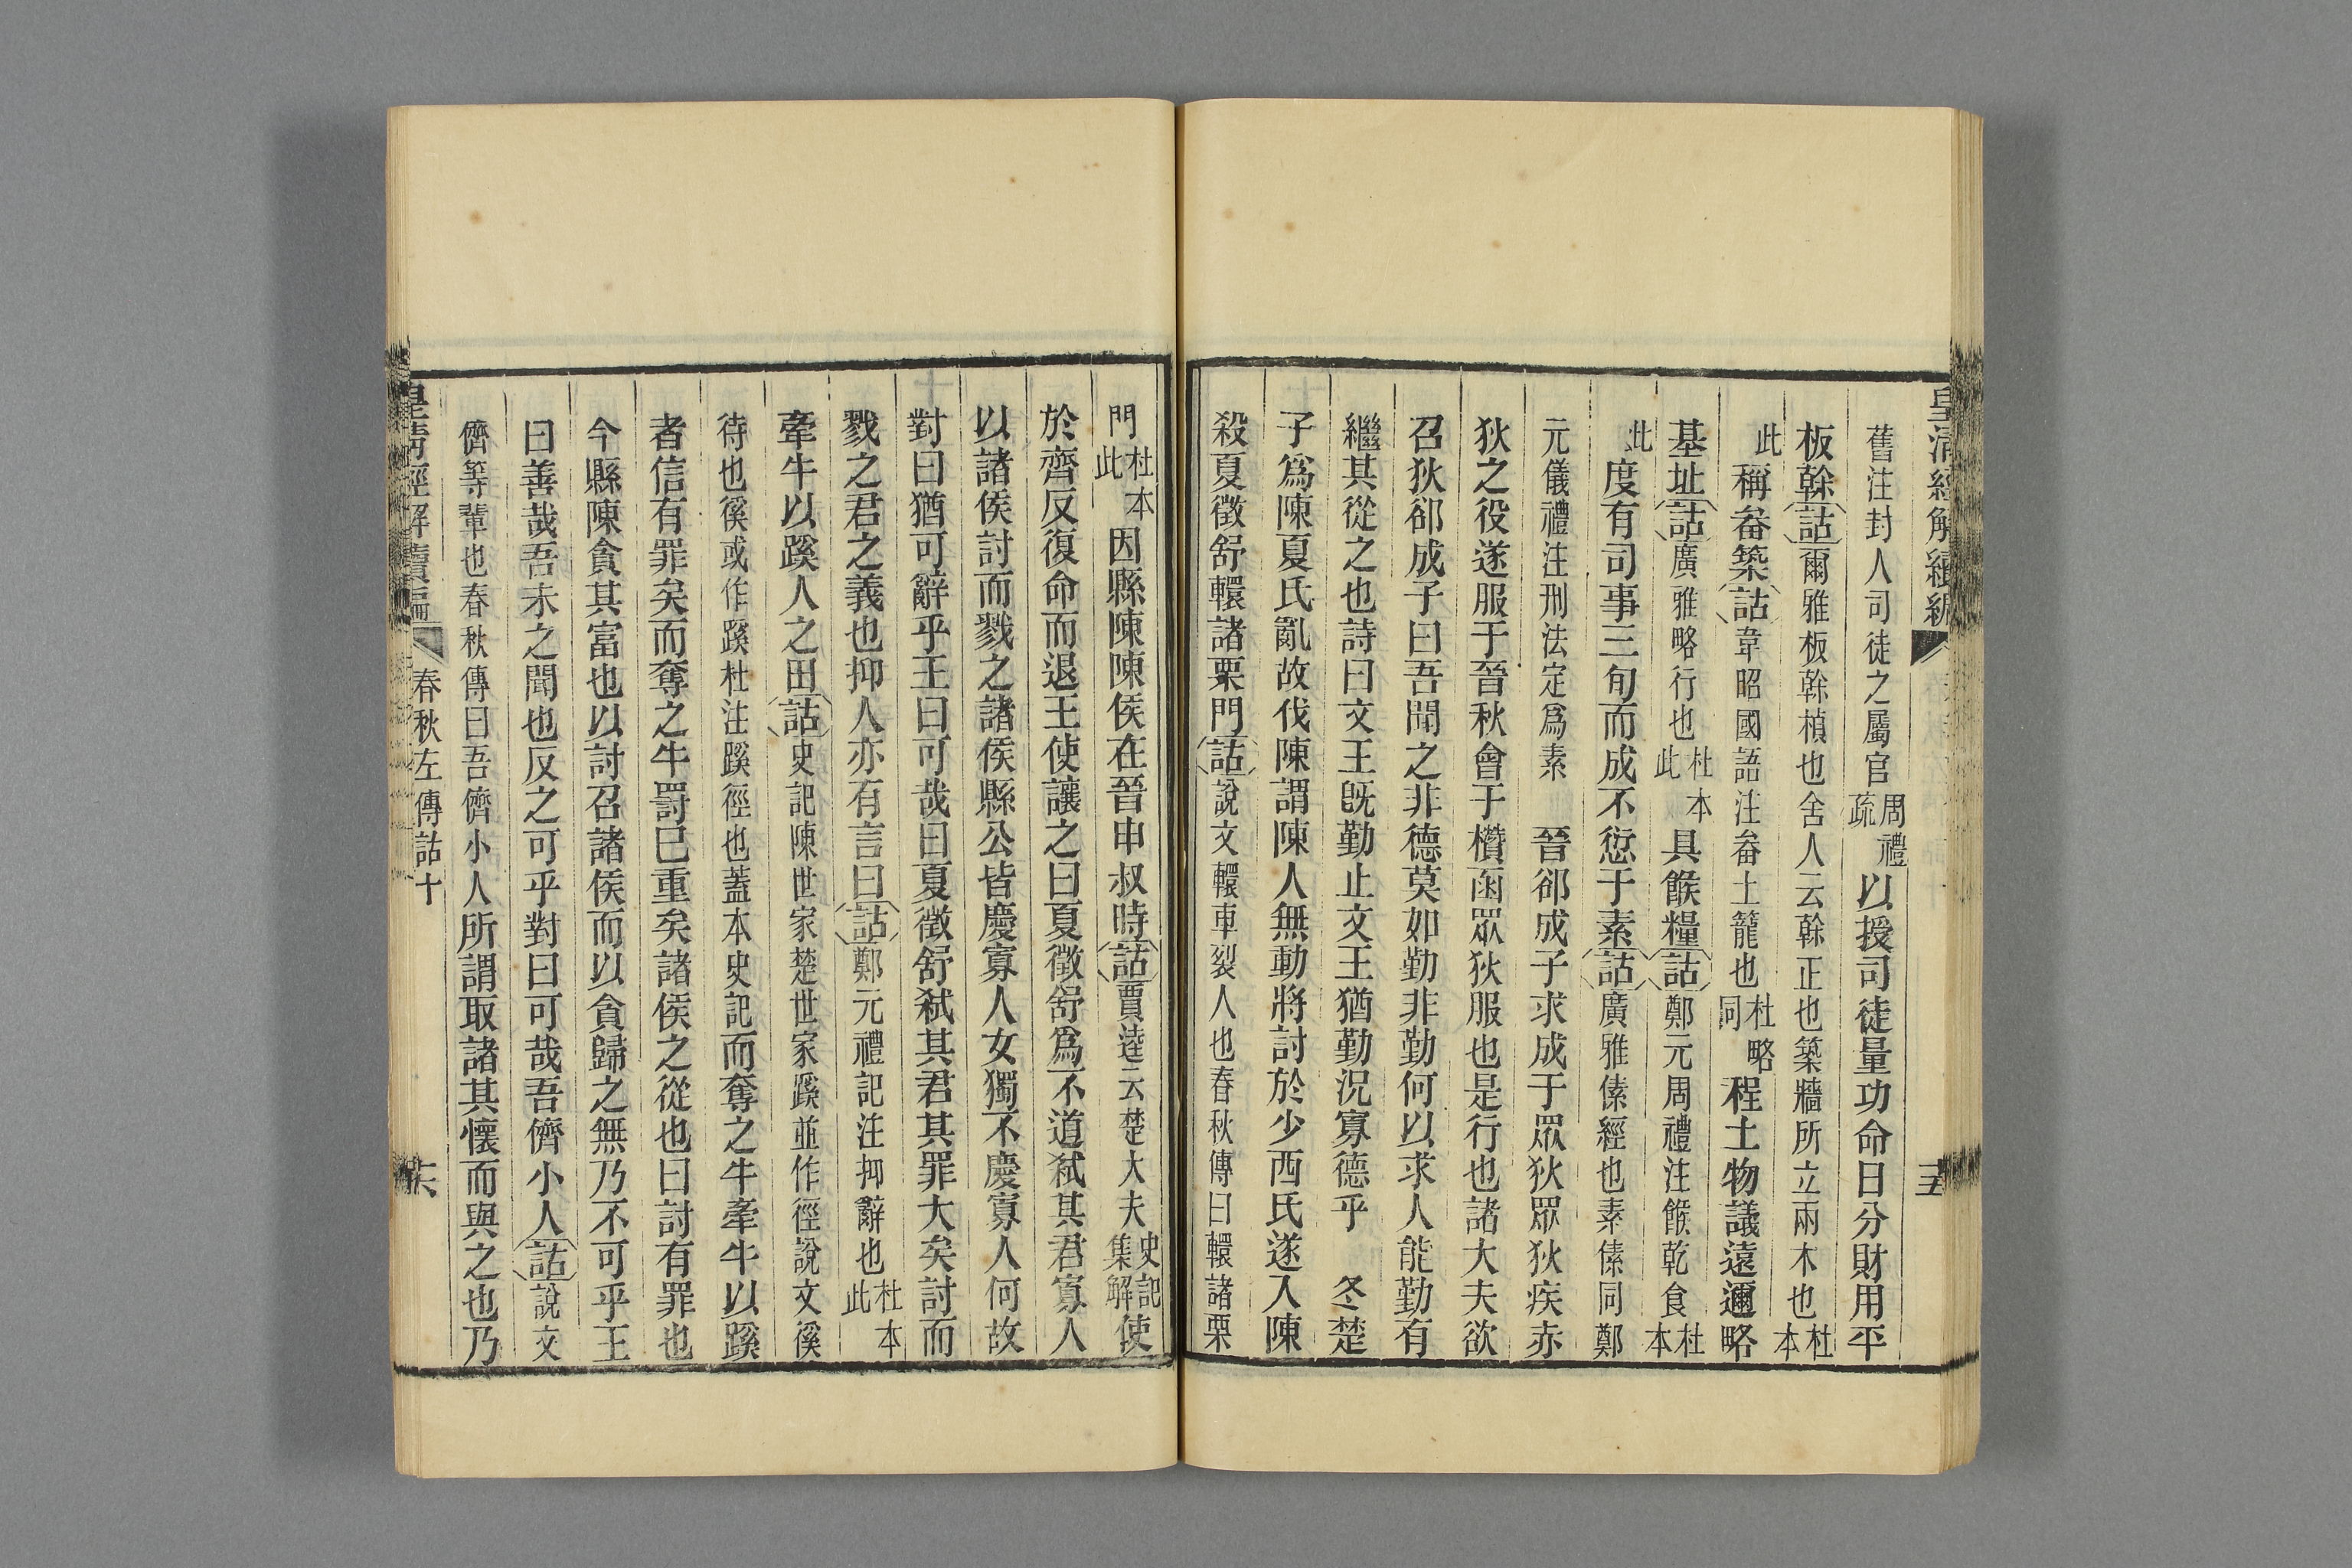 皇清經解續編
五
舊注封人司徒之屬官周禮疏以授司徒量功命日分財用平
板榦詁爾雅板榦楨也舍人云榦正也築牆所立兩木也杜本
此稱畚築詁韋昭國語注畚土籠也杜略同程土物議遠邇略
基址詁廣雅略行也杜本此具餱糧詁鄭元周禮注餱乾食杜本
此度有司事三旬而成不愆于素詁廣雅傃經也素傃同鄭
元儀禮注刑法定爲素　晉郤成子求成于眾狄眾狄疾赤
狄之役遂服于晉秋會于欑函眾狄服也是行也諸大夫欲
召狄郤成子曰吾聞之非德莫如勤非勤何以求人能勤有
繼其從之也詩曰文王旣勤止文王猶勤況寡德乎　冬楚
子爲陳夏氏亂故伐陳謂陳人無動將討於少西氏遂入陳
殺夏徵舒轘諸栗門詁說文轘車裂人也春秋傳曰轘諸栗
門杜本此因縣陳陳侯在晉申叔時詁賈逵云楚大夫史記集解使
於齊反復命而退王使讓之曰夏徵舒爲不道弑其君寡人
以諸侯討而戮之諸侯縣公皆慶寡人女獨不慶寡人何故
對曰猶可辭乎王曰可哉曰夏徵舒弑其君其罪大矣討而
戮之君之義也抑人亦有言曰詁鄭元禮記注抑辭也杜本此
牽牛以蹊人之田詁史記陳世家楚世家蹊並作徑說文徯
待也徯或作蹊杜注蹊徑也蓋本史記而奪之牛牽牛以蹊
者信有罪矣而奪之牛罰已重矣諸侯之從也曰討有罪也
今縣陳貪其富也以討召諸侯而以貪歸之無乃不可乎王
曰善哉吾未之聞也反之可乎對曰可哉吾儕小人詁說文
儕等輩也春秋傳曰吾儕小人所謂取諸其懷而與之也乃
皇清經解續編　春秋左傳詁十